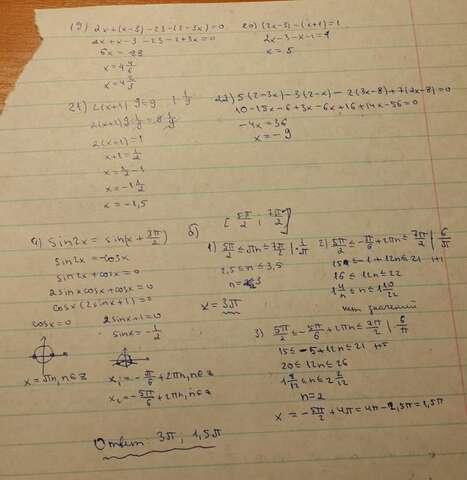 19) 2x+(x-3)-23-(2-3x)=0
2x+x-3-23-2+3x=0
6x=28
x=4 4/6
x=4 2/3
20) (2x-3)-(x+1)=1
2x-3-x-1=1
x=5
21) 2(x+1)·9=9 | 1/9
2(x+1)
2(x+1)=1
x+1=1/2
x=1/2-1
x=-1 1/2
x=-1,5
22) 5(2-3x)-3(2-x)-2(3x-8)+7(2x-8)=0
10-15x-6+3x-6x+16+14x-56=0
-4x=36
x=-9
а) sin2x=sin(x+3π/2)
sin2x=-cosx
sin2x+cosx=0
2sinxcosx+cosx=0
cosx(2sinx+1)=0
cosx=0 2sinx+1=0
sinx=-1/2
x=πn, n∈z x₁=-π/6+2πn, n∈z
x₂=-5π/6+2πn, n∈z
б) [5π/2; 7π/2]
1) 5π/2≤πn≤7π/2 |·1/π
2,5≤n≤3,5
n=3
x=3π
2) 5π/2≤-π/6+2πn≤7π/2 | 6/π
15≤-1+12n≤21 +1
16≤12n≤22
1 4/12≤n≤1 10/22
нет значений
3) 5π/2≤-5π/6+2πn≤7π/2 | 6/π
15≤-5+12n≤21 +5
20≤12n≤26
1 8/12≤n≤2 2/12
n=2
x=-5π/2+4π=4π-2,5π=1,5π
Ответ 3π; 1,5π